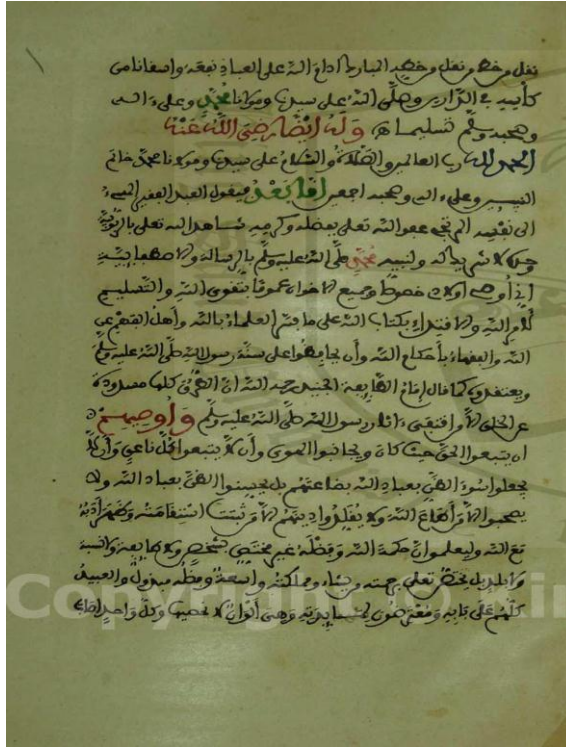 نقل من خط من نقل من خط المبارك ادام الله على العباد نفعه واسعانا من
الدارين وصلى الله على سيدنا ومولانا محمد وعلى ءاله
وصحبه وسلم تسليما وله ايضا رضي الله عنه
الحمد لله رب العالمين والصلاة والسلام على سيدنا ومولانا محمد خاتم
النبيين وعلى ءاله وصحبه اجمعين اما بعد فيقول العبد الفقير
الى عفو الله تعلى بفضله وكرمه شاهدا لله تعلى بالربوبية
وحده لا شريك له ولنبيه محمد صلى الله عليه وسلم بالرسالة والاصطفائية
اني أوصي اولادي خصوصا وجميع الاخوان عموما بتقوى الله والتسليم
لأمر الله والاقتداء بكتاب الله على ما فسر العلماء بالله وأهل الفهم عن
الله والفقهاء بأحكام الله وأن يحافظوا على سنة رسول الله صلى الله عليه وسلم
ويعتقدوا كما قال إمام الطايفة الجنيد رحمه الله ان الطرق كلها مسدودة
عن الخلق الا من اقتفى ءاثار رسول الله صلى الله عليه وسلم وأوصيهم
ان يتبعوا الحق حيث كان ويجانبوا الهوى وأن لا يتبعوا كل ناعق وأن لا
يجعلوا سوء الظن بعباد الله بضاعتهم بل يحسنوا الظن بعباد الله ولا
يصحبوا الا من أطاع الله ولا يقلدوا دينهم الا من ثبتت استقامته وظهر أدبه
مع الله وليعلموا ان رحمة الله وفضله غير مختص بشخص ولا طايفة ولا نسبة
ولا بلد بل يختص تعلى برحمته من يشاء ومملكته واسعة وفضله مبذول والعبيد
كلهم على بابه ومتعرضون لحسنا يديه وهي أنواع لا تحصى وكل واحد
Copyright © Kin